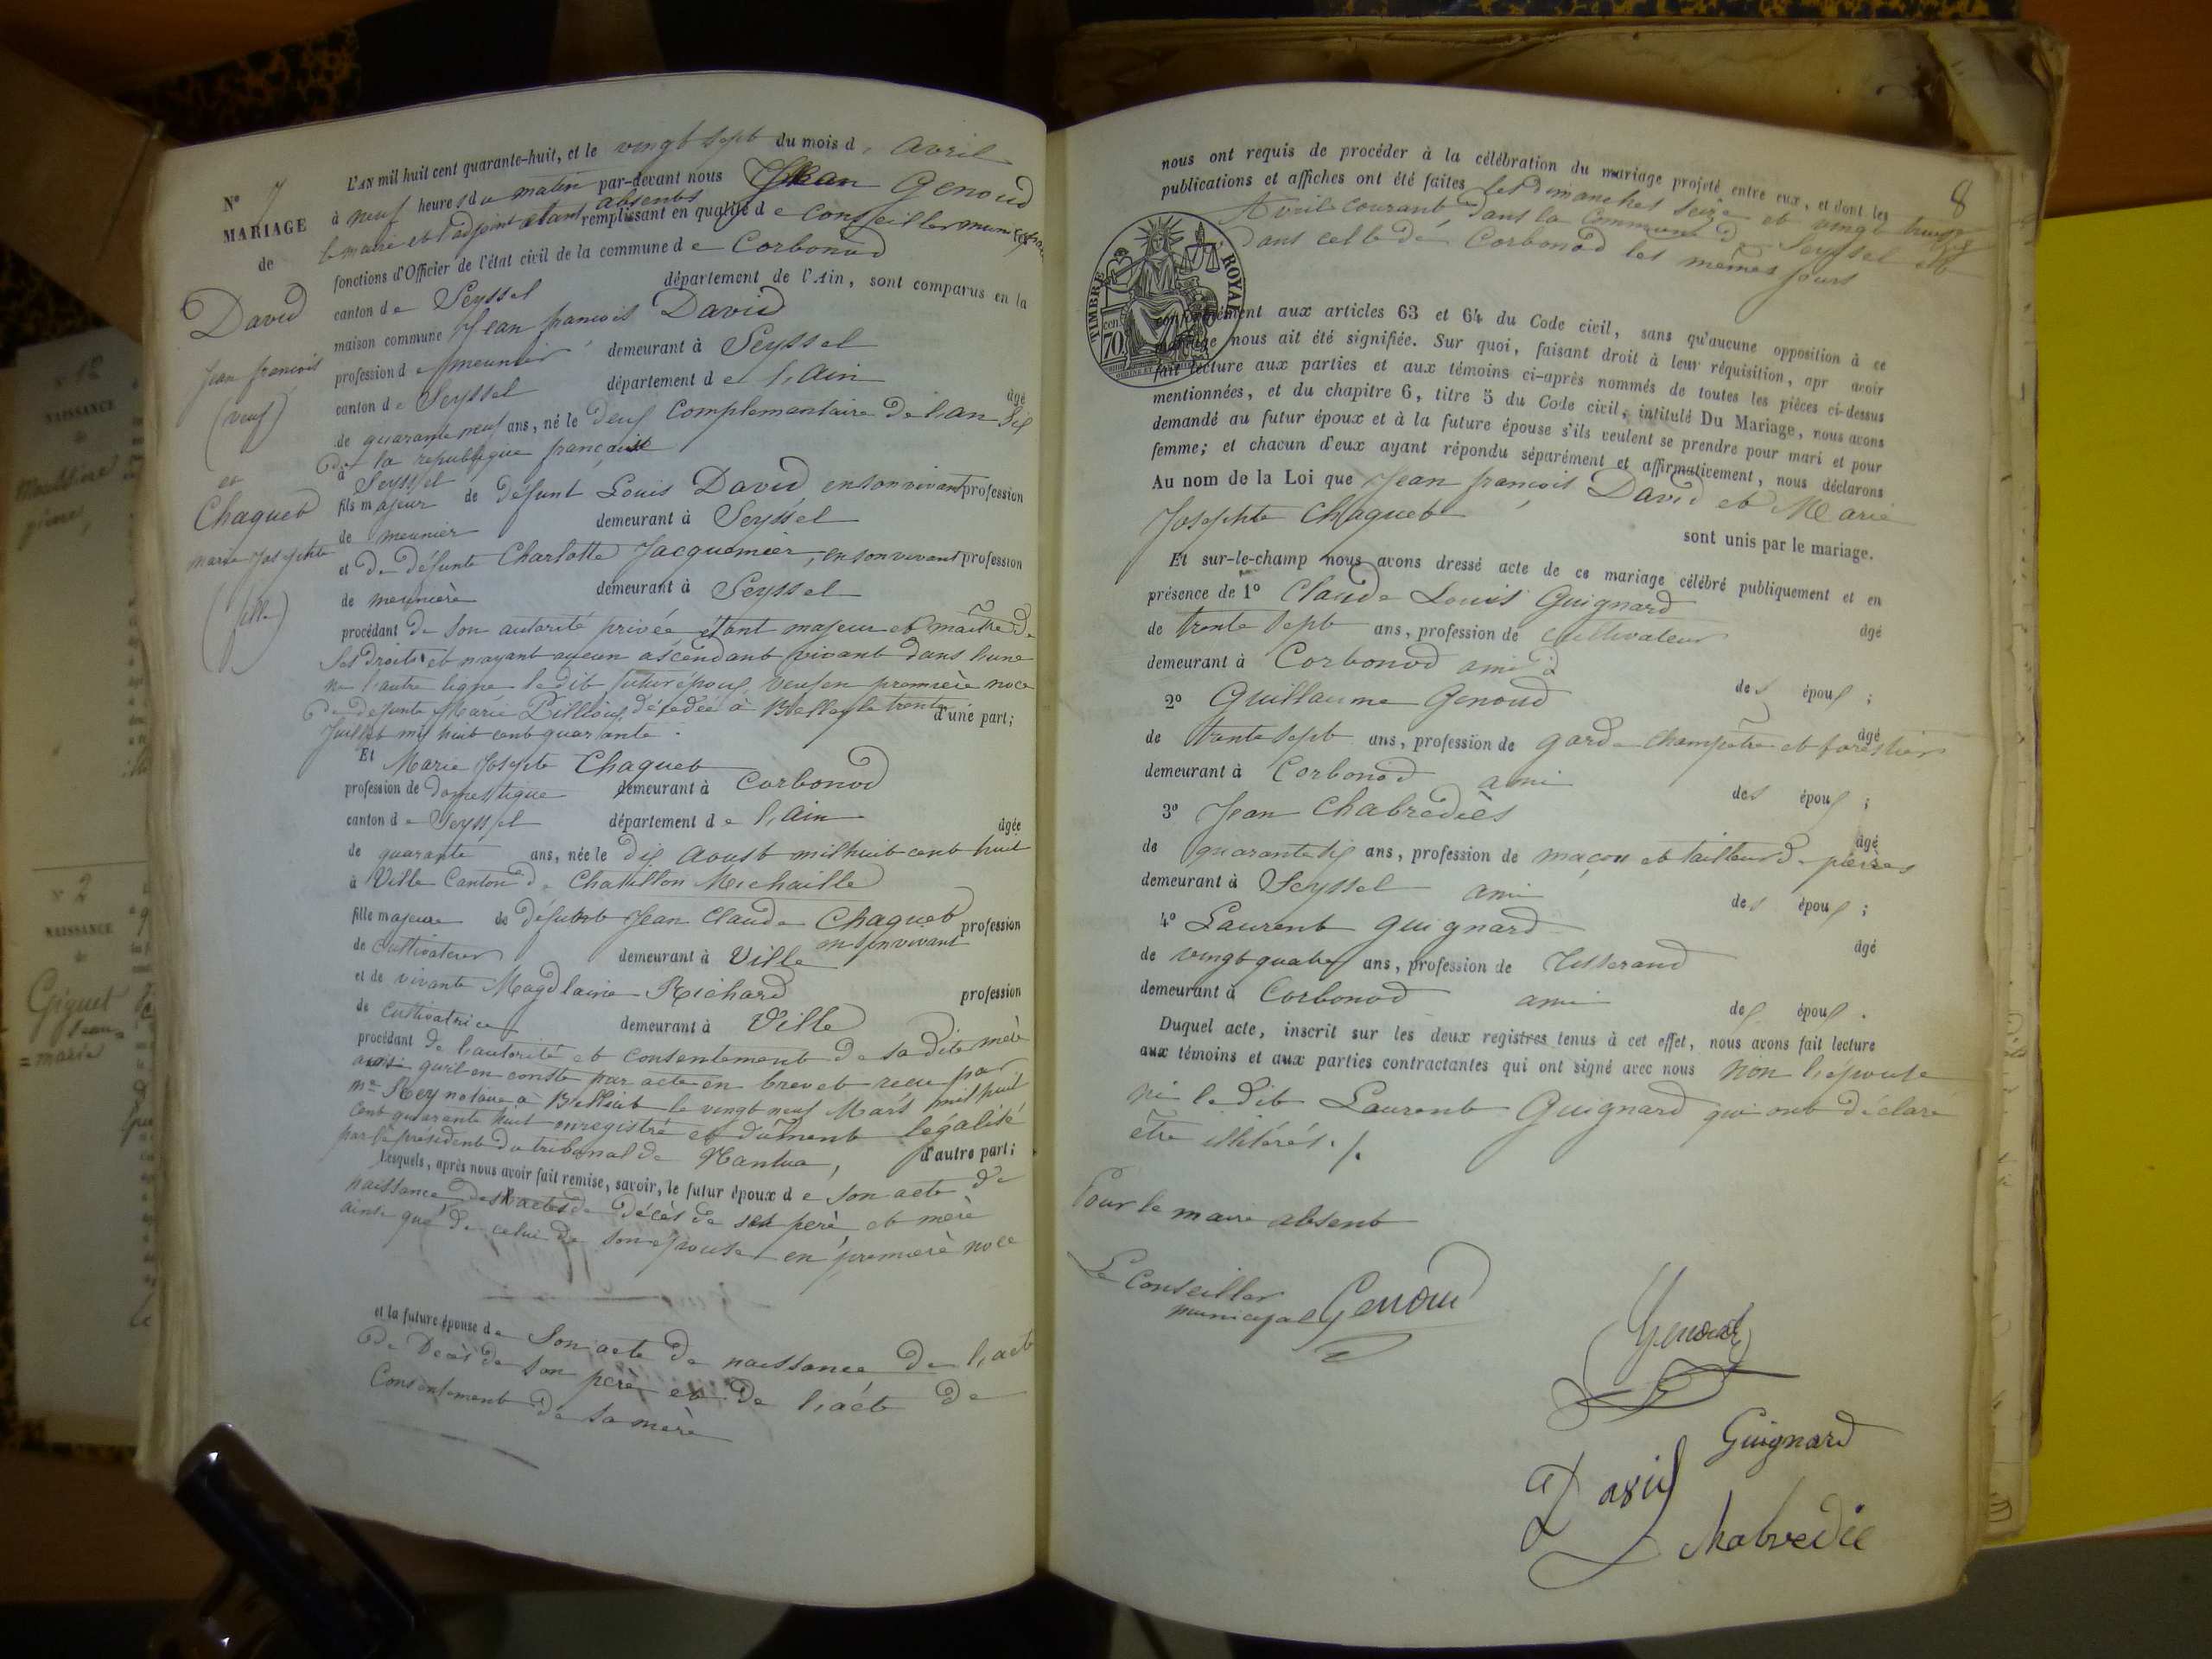 N° 7
MARIAGE
de
David
Jean françois
(veuf)
et
Chaquet
marie Josephte
(fille)
L'AN mil huit cent quarante-huit, et le vingt sept du mois d' avril
à neuf heures du matin par-devant nous Jean Genoud
le maire et l'adjoint étant absents remplissant en qualité de conseiller municipal
fonctions d'Officier de l'état civil de la commune de Corbonod
canton de Seyssel département de l'Ain, sont comparus en la
maison commune Jean françois David
profession de meunier demeurant à Seyssel
canton de Seyssel département de l'Ain âgé
de quarante neuf ans, né le deux complementaire de l'an six
de la republique française
à Seyssel
fils majeur de défunt Louis David en son vivant profession
de meunier demeurant à Seyssel
et de défunte Charlotte Jacquemier, en son vivant profession
de meunière demeurant à Seyssel
procédant de son autorité privée étant majeur et maître de
ses droits et n'ayant aucun ascendant vivant dans l'une
ni l'autre ligne ledit futur époux veuf en première noce
de defunte Marie Pillioux décédée à Belley le trente d'une part;
Juillet mil huit cent quarante.
Et Marie Josephte Chaquet
profession de domestique demeurant à Corbonod
canton de Seyssel département de l'Ain âgée
de quarante ans, née le dix aoust mil huit cent huit
à Ville Canton de Chatillon Michaille
fille majeure de défunt Jean Claude Chaquet profession
en son vivant
de cultivateur demeurant à Ville
et de vivante Magdlaine Richard profession
de cultivatrice demeurant à Ville
procédant de l'autorité et consentement de sa dite mère
ainsi qu'il en conste par acte en brevet reçu par
me Rey notaire à Belliat le vingt neuf Mars mil huit
cent quarante huit enregistré et dûment légalisé
par le président du tribunal de Nantua, d'autre part;
Lesquels, après nous avoir fait remise, savoir, le futur époux de son acte de
naissance des actes de décès de ses père et mère
ainsi que de celui de son epouse en première noce
et la future épouse de son acte de naissance de l'acte
de Décès de son père et de l'acte de
Consentement de sa mère
8
nous ont requis de procéder à la célébration du mariage projeté entre eux, et dont les
publications et affiches ont été faites les dimanches seize et vingt trois
Avril courant, dans la commune de Seyssel et
dans celle de Corbonod les mêmes jours
TIMBRE ROYAL
70 cen.
conformément aux articles 63 et 64 du Code civil, sans qu'aucune opposition à ce
mariage nous ait été signifiée. Sur quoi, faisant droit à leur réquisition, apr avoir
fait lecture aux parties et aux témoins ci-après nommés de toutes les pièces ci-dessus
mentionnées, et du chapitre 6, titre 5 du Code civil, intitulé Du Mariage, nous avons
demandé au futur époux et à la future épouse s'ils veulent se prendre pour mari et pour
femme; et chacun d'eux ayant répondu séparément et affirmativement, nous déclarons
Au nom de la Loi que Jean françois David et Marie
Josephte Chaquet
sont unis par le mariage.
Et sur-le-champ nous avons dressé acte de ce mariage célébré publiquement et en
présence de 1° Claude Louis Guignard
âgé
de trente sept ans, profession de cultivateur
demeurant à Corbonod ami
des époux ;
2° Guillaume Genoud
âgé
de trente sept ans, profession de garde champêtre et forestier
demeurant à Corbonod ami
des époux ;
3° Jean Chabrediès
âgé
de quarante six ans, profession de maçon et tailleur de pierres
demeurant à Seyssel ami
des époux ;
4° Laurent Guignard
âgé
de vingt quatre ans, profession de Tisserand
demeurant à Corbonod ami
des époux .
Duquel acte, inscrit sur les deux registres tenus à cet effet, nous avons fait lecture
aux témoins et aux parties contractantes qui ont signé avec nous non l'epouse
ni le dit Laurent Guignard qui ont déclaré
être illitérés ./.
Pour le maire absent
Le Conseiller
municipal Genoud
Genoud
Guignard
David
Chabredie
N° 12
NAISSANCE
N° 2
NAISSANCE
de
Giguet
Jean=
=marie